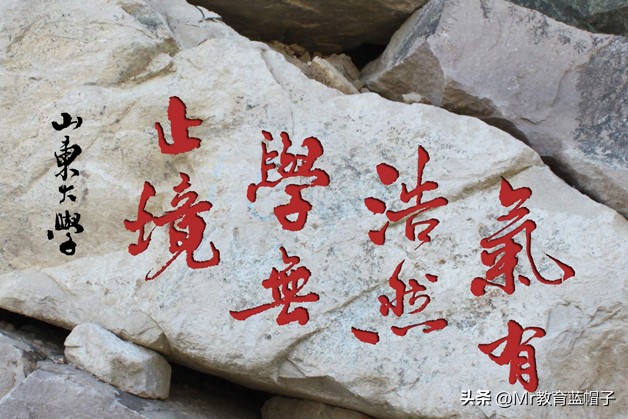 氣有
浩然
學無
止境
山東大學
头条 @Mr教育蓝帽子